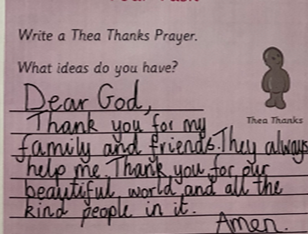 Write a Thea Thanks Prayer.
What ideas do you have?
Thea Thanks
Dear God,
Thank you for my
family and friends. They always
help me. Thank you for our
beautiful world and all the
kind people in it.
Amen.